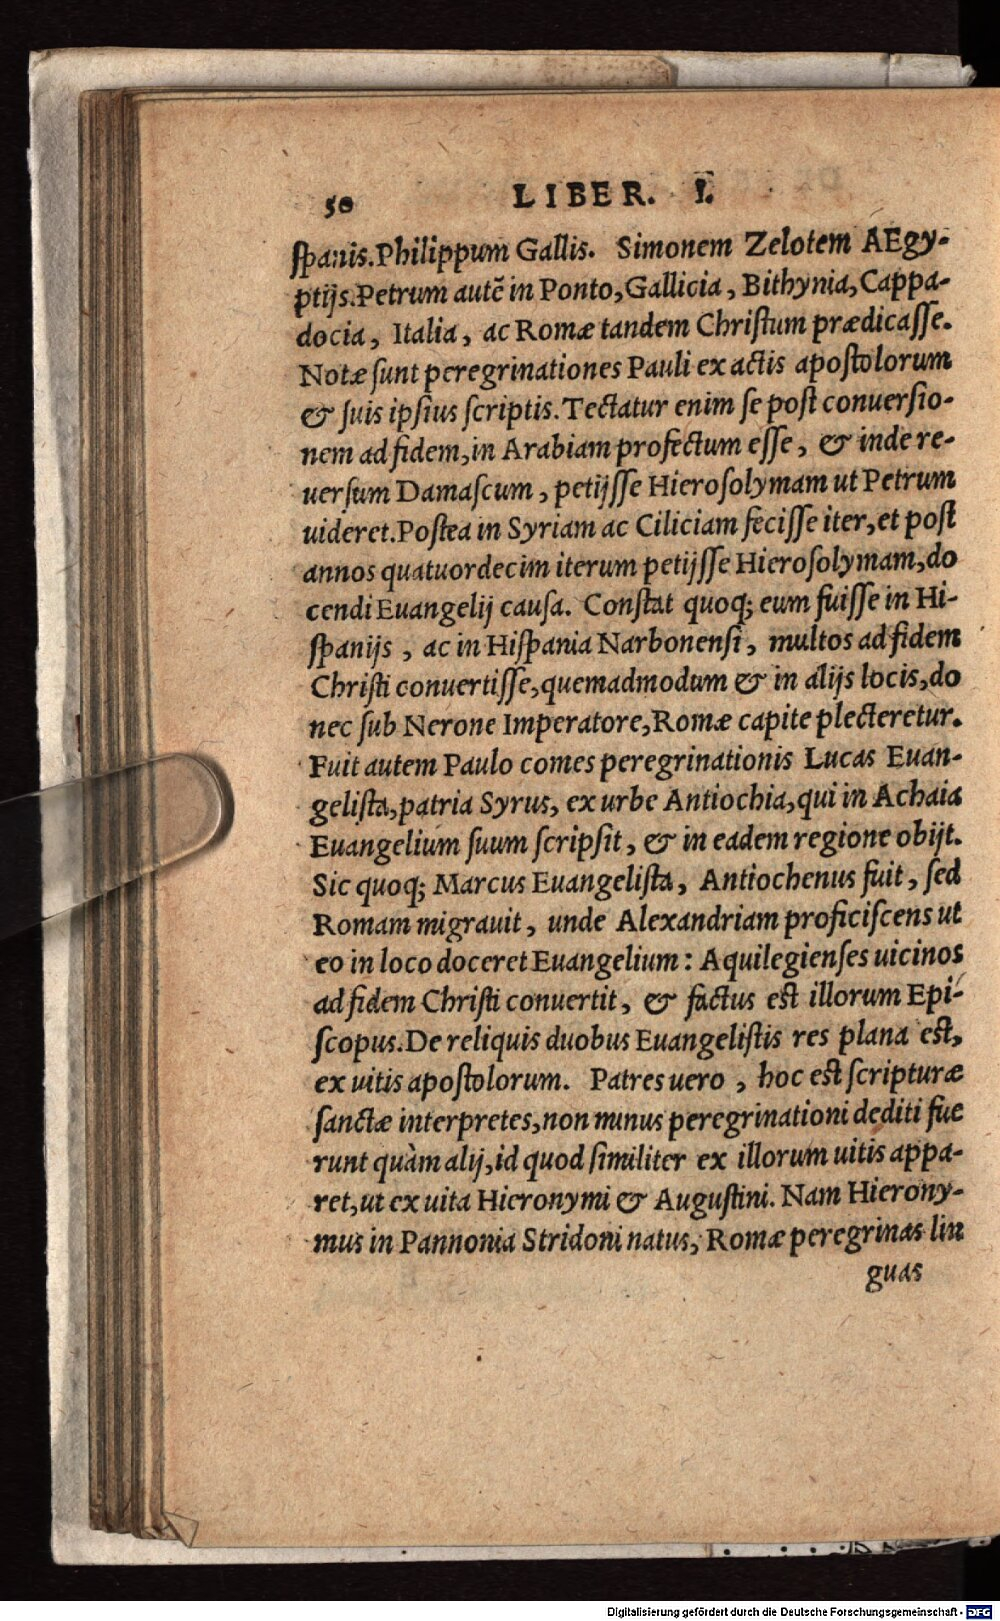 50 LIBER. I.
spanis. Philippum Gallis. Simonem Zelotem AEgy-
ptijs. Petrum autē in Ponto, Gallicia, Bithynia, Cappa-
docia, Italia, ac Romæ tandem Christum prædicasse.
Notæ sunt peregrinationes Pauli ex actis apostolorum
& suis ipsius scriptis. Tectatur enim se post conuersio-
nem ad fidem, in Arabiam profectum esse, & inde re-
uersum Damascum, petijsse Hierosolymam ut Petrum
uideret. Postea in Syriam ac Ciliciam fecisse iter, et post
annos quatuordecim iterum petijsse Hierosolymam, do
cendi Euangelij causa. Constat quoq; eum fuisse in Hi-
spanijs, ac in Hispania Narbonensi, multos ad fidem
Christi conuertisse, quemadmodum & in alijs locis, do
nec sub Nerone Imperatore, Romæ capite plecteretur.
Fuit autem Paulo comes peregrinationis Lucas Euan-
gelista, patria Syrus, ex urbe Antiochia, qui in Achaia
Euangelium suum scripsit, & in eadem regione obijt.
Sic quoq; Marcus Euangelista, Antiochenus fuit, sed
Romam migrauit, unde Alexandriam proficiscens ut
eo in loco doceret Euangelium: Aquilegienses uicinos
ad fidem Christi conuertit, & factus est illorum Epi-
scopus. De reliquis duobus Euangelistis res plana est,
ex uitis apostolorum. Patres uero, hoc est scripturæ
sanctæ interpretes, non minus peregrinationi dediti fue
runt quàm alij, id quod similiter ex illorum uitis appa-
ret, ut ex uita Hieronymi & Augustini. Nam Hierony-
mus in Pannonia Stridoni natus, Romæ peregrinas lin
guas
Digitalisierung gefördert durch die Deutsche Forschungsgemeinschaft - DFG